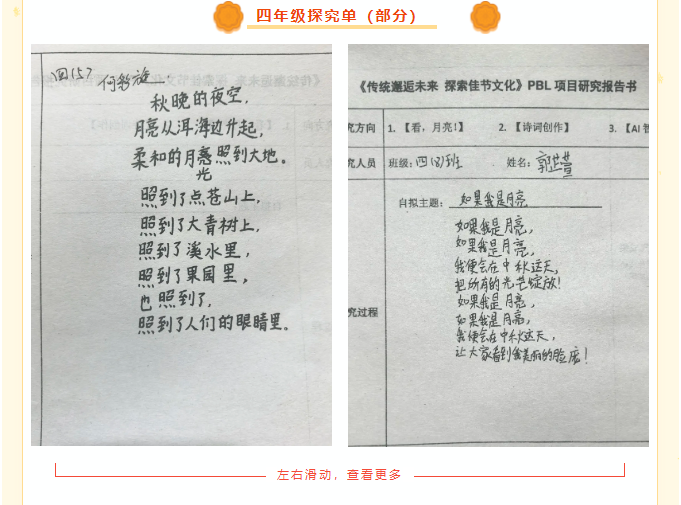 四年级探究单（部分）
四(5) 何彩旋
秋晚的夜空，
月亮从洱海边升起，
柔和的月亮照到大地。
光
照到了点苍山上，
照到了大青树上，
照到了溪水里，
照到了果园里，
也照到了，
照到了人们的眼睛里。
《传统邂逅未来 探索佳节文化》PBL 项目研究报告书
究方向 1.【看，月亮!】 2.【诗词创作】 3.【AI
究人员 班级：四(8)班 姓名：郭世萱
自拟主题：如果我是月亮
究过程
如果我是月亮，
如果我是月亮，
我便会在中秋这天，
把所有的光芒绽放！
如果我是月亮，
如果我是月亮，
我便会在中秋这天，
让大家看到我美丽的脸庞！
左右滑动，查看更多